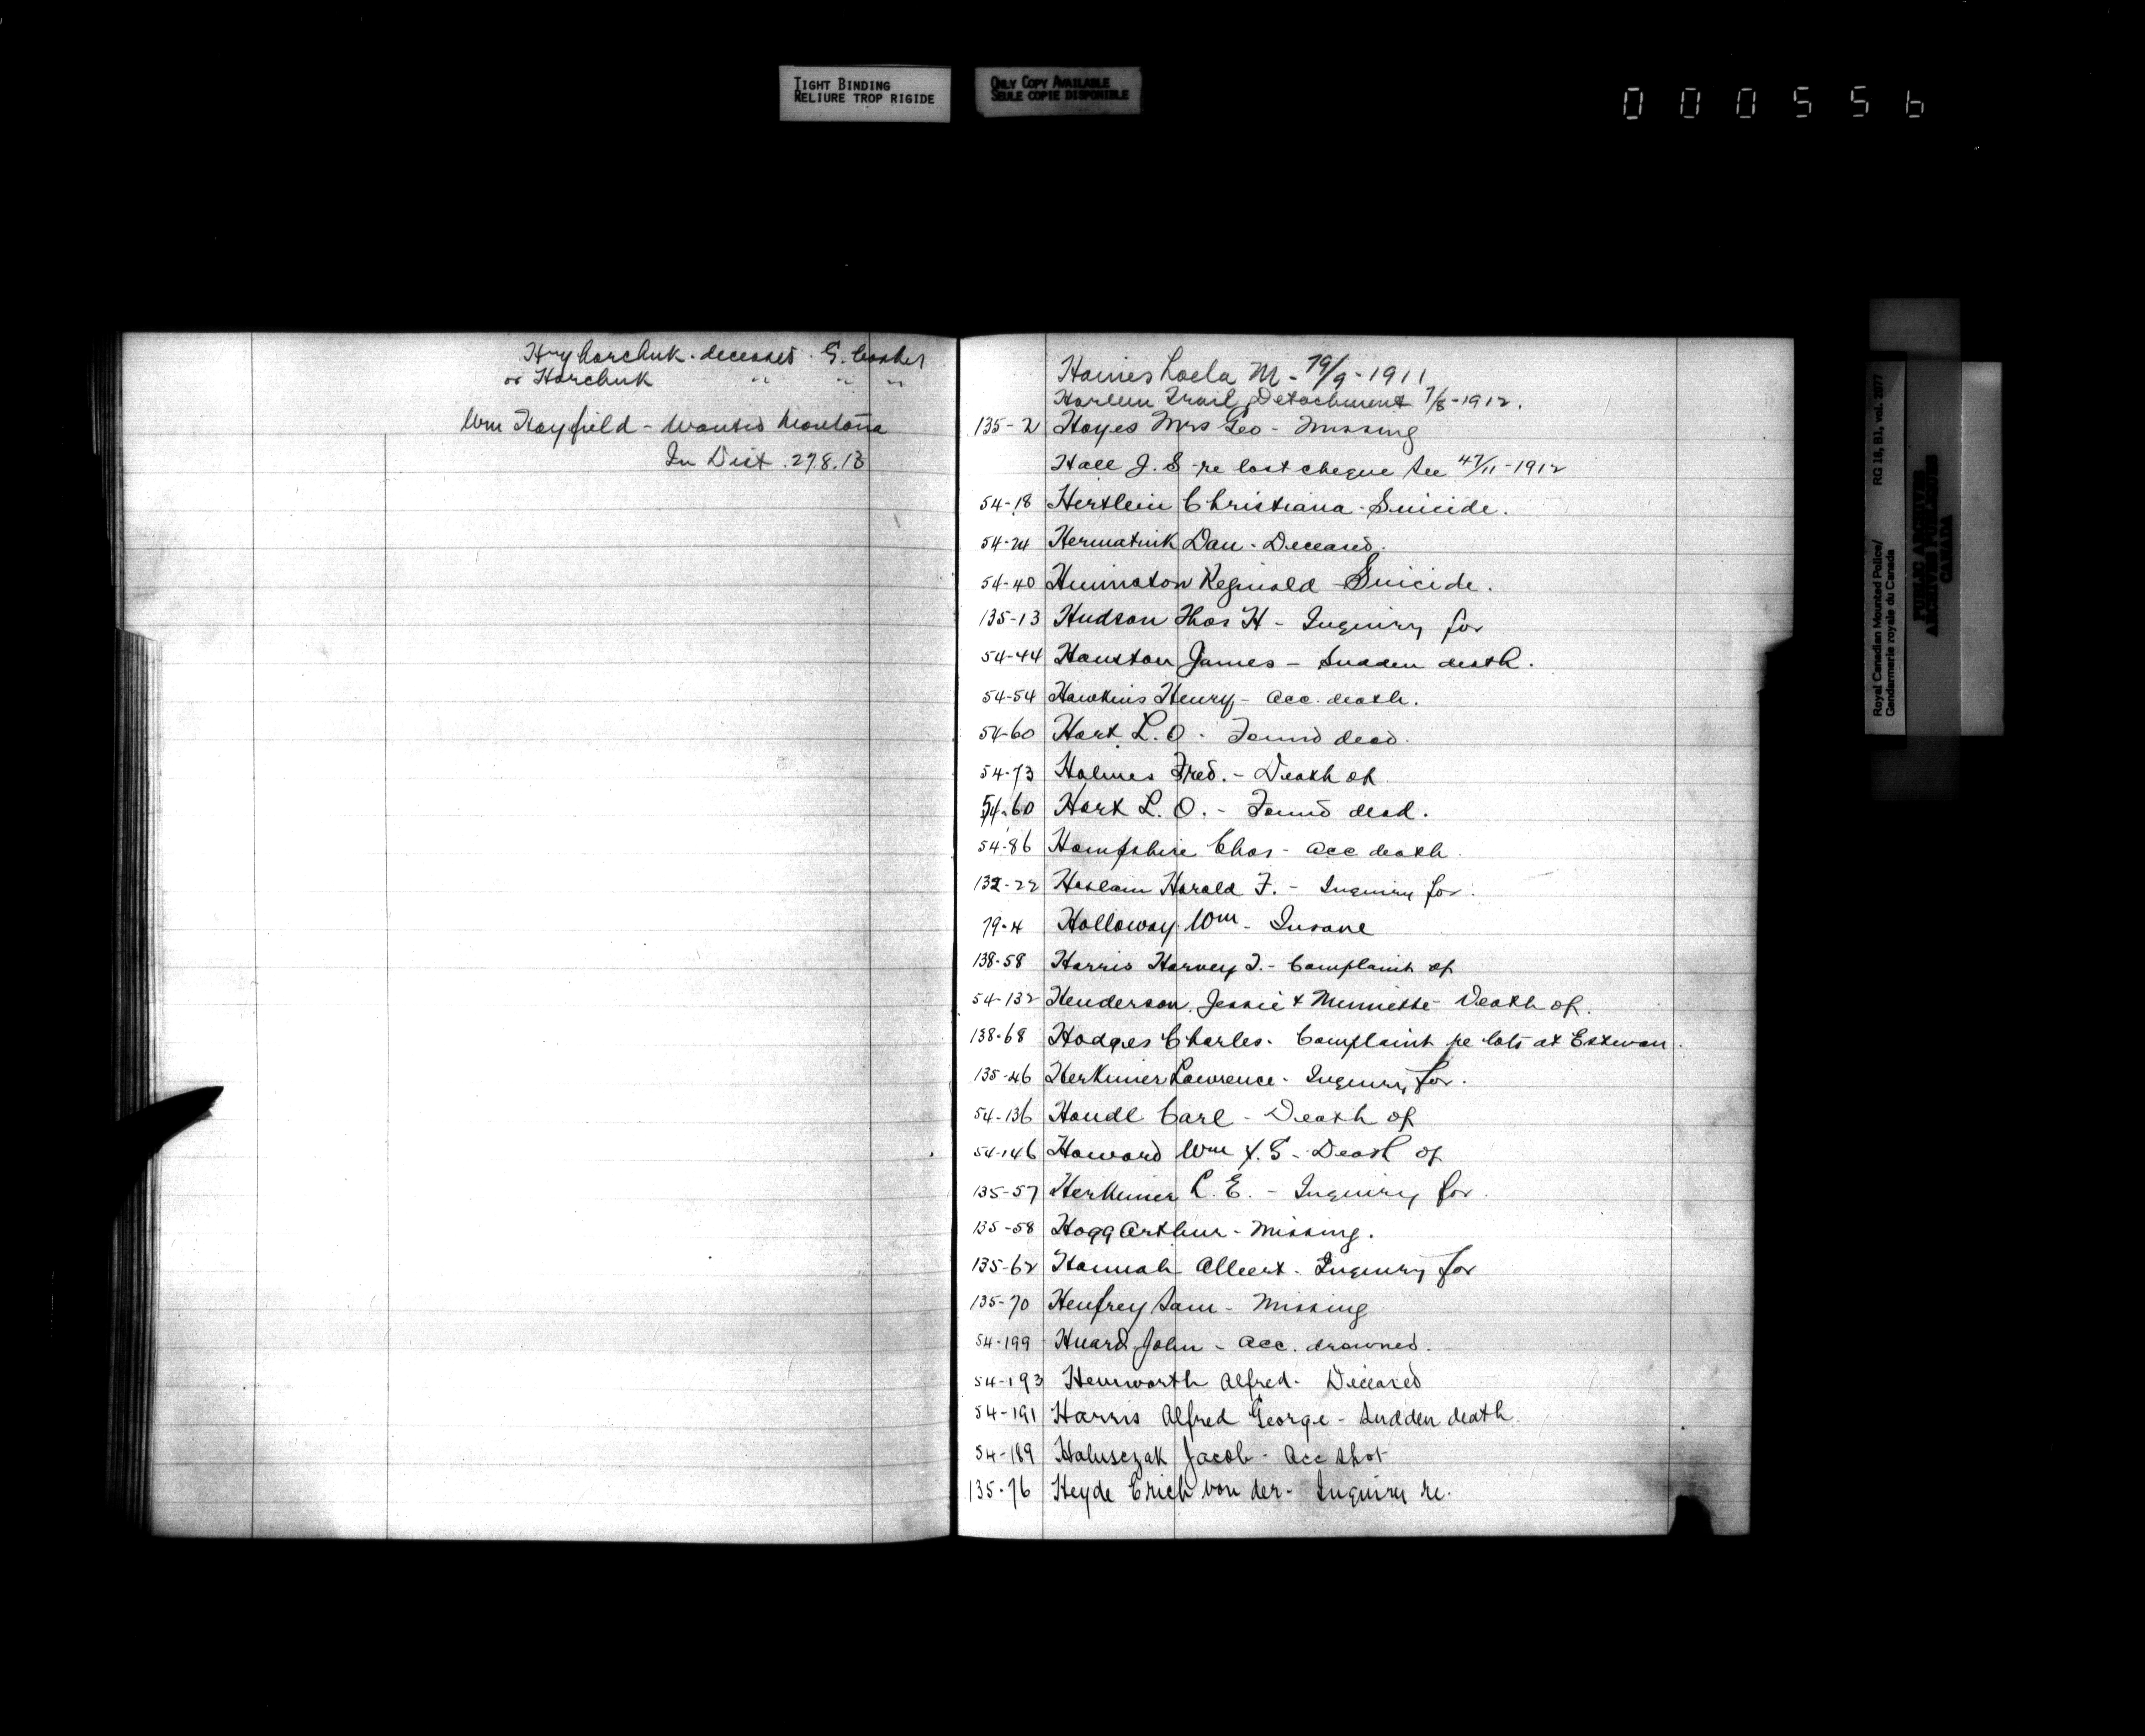 TIGHT BINDING
RELIURE TROP RIGIDE
ONLY COPY AVAILABLE
SEULE COPIE DISPONIBLE
000556
Hryharchuk - deceased - G.
or Harchuk " " "
Wm Hayfield - Wanted Montana
In Dist. 27.8.13
Haines Loela M - 79/9 - 1911
Harlem Trail Detachment 7/8 - 1912.
135-2 Hayes Mrs Geo - Missing
Hall J. S - re lost cheque see 47/11 - 1912
54-18 Hertlein Christiana - Suicide.
54-24 Hermatiuk Dan - Deceased.
54-40 Reginald - Suicide.
135-13 Hudson Thos H - Inquiry for
54-44 Houston James - Sudden death.
54-54 Hawkins Henry - Acc. death.
54-60 Hart L. O - Found dead.
54-73 Holmes Fred. - Death of
54-60 Hart L. O. - Found dead.
54-86 Hampshire Chas - Acc death.
132-22 Heslam Harold F. - Inquiry for.
79-4 Holloway Wm - Insane
138-58 Harris Harvey T. - Complaint of
54-132 Henderson Jessie & Minnette - Death of.
138-68 Hodges Charles - Complaint re lots at Estevan.
135-46 Herkimer Lawrence - Inquiry for.
54-136 Handl Carl - Death of
54-146 Howard Wm X. G - Death of
135-57 Herkimer L. E. - Inquiry for.
135-58 Hogg Arthur - Missing.
135-62 Hannah Albert - Inquiry for
135-70 Henfrey Sam - Missing
54-199 Huard John - Acc. drowned.
54-193 Hemworth Alfred - Deceased
54-191 Harris Alfred George - Sudden death.
54-189 Halusczak Jacob - Acc shot
135-76 Heyde Erich von der - Inquiry re.
Royal Canadian Mounted Police/
Gendarmerie royale du Canada
RG 18, B1, vol. 2077
PUBLIC ARCHIVES
ARCHIVES PUBLIQUES
CANADA